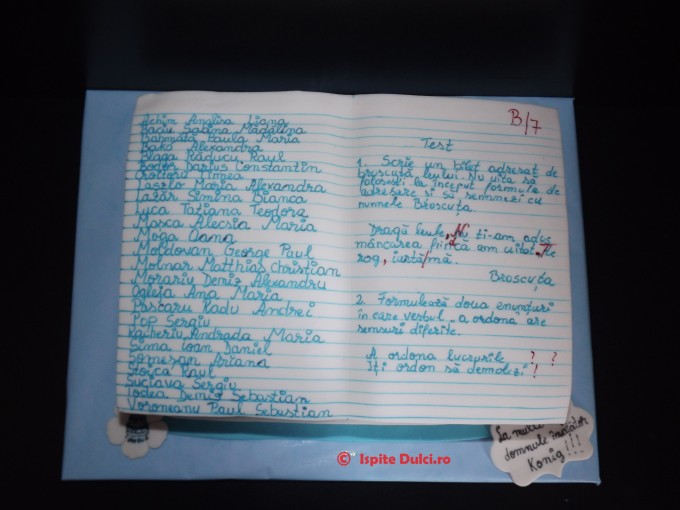 Achim Analisa Liana
Baciu Sabina Mădălina
Bahmată Paula Maria
Bako Alexandra
Blaga Răducu Raul
Bodea Darius Constantin
Croitoru Timea
Laszlo Maria Alexandra
Lazăr Simina Bianca
Luca Tatiana Teodora
Mosca Alecsia Maria
Moga Oana
Moldovan George Paul
Molnar Matthias Christian
Morariu Denis Alexandru
Oglejа Ana Maria
Păscaru Radu Andrei
Pop Sergiu
Racheriu Andrada Maria
Sima Ioan Daniel
Someșan Ariana
Stoica Raul
Suciava Sergiu
Todea Denis Sebastian
Voroneanu Paul Sebastian
B/7
Test
1. Scrie un bilet adresat de
broscuță leului. Nu uita să
folosești la început formule de
adresare și să semnezi cu
numele Broscuța.
Dragă leule, Nu ți-am adus
mâncarea fiincă am uitat. Te
rog, iartă/mă.
Broscuța
2. Formulează doua enunțuri
în care verbul „a ordona" are
sensuri diferite.
A ordona lucrurile ? ?
Iți ordon să demolezi !
La mulți
domnule învățător
Konig!!!
© Ispite Dulci.ro